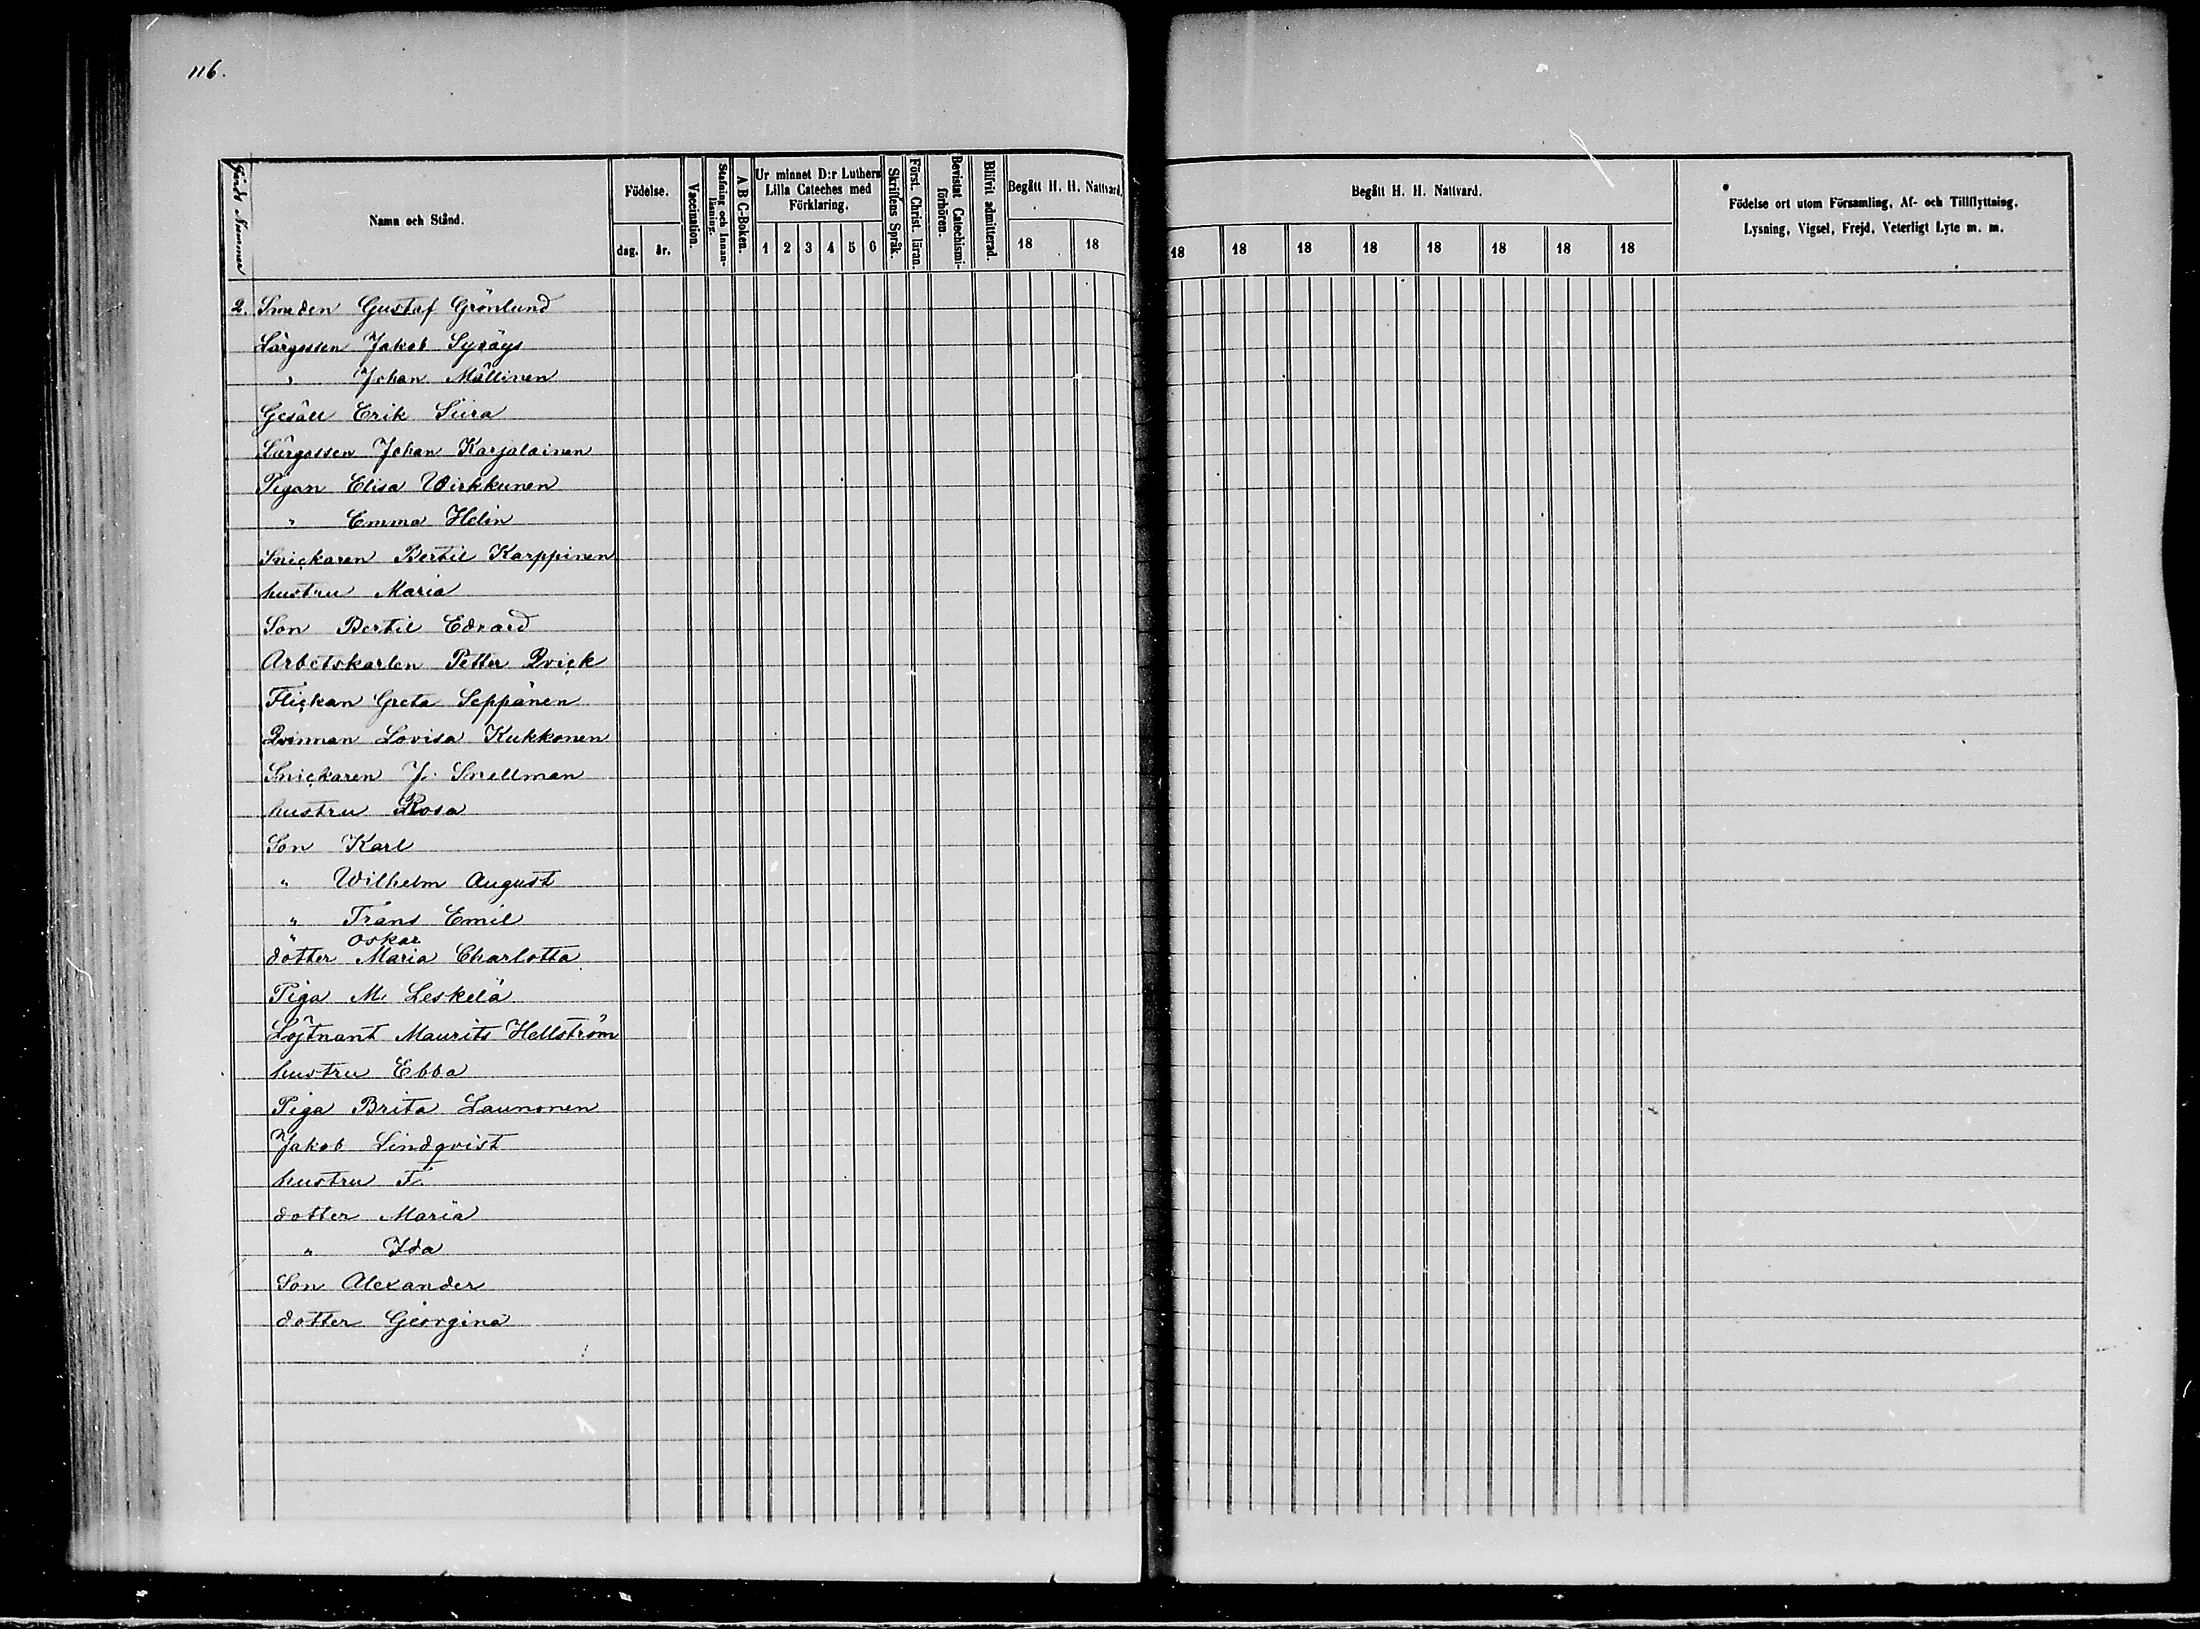 116.
Gårds Nummer
Namn och Stånd.
Födelse.
dag.
år.
Vaccination.
Stafning och Innan-
läsning.
A B C-Boken.
Ur minnet D:r Luthers
Lilla Cateches med
Förklaring.
1 2 3 4 5 6
Skriftens Språk.
Först. Christ. läran.
Bevistat Catechismi-
förhören.
Blifvit admitterad.
Begått H. H. Nattvard.
18 18
Begått H. H. Nattvard.
18 18 18 18 18 18 18 18
Födelse ort utom Församling, Af- och Tillflyttning,
Lysning, Vigsel, Frejd, Veterligt Lyte m. m.
2. Smeden Gustaf Grönlund
Lärgossen Jakob Syväys
" Johan Mällinen
Gesäll Erik Siira
Lärgossen Johan Karjalainen
Pigan Elisa Wirkkunen
" Emma Helin
Snickaren Bertil Karppinen
hustru Maria
Son Bertil Edvard
Arbetskarlen Petter Qvick
Flickan Greta Seppänen
Qvinnan Lovisa Kukkonen
Snickaren J. Snellman
hustru Rosa
Son Karl
" Wilhelm August
" Frans Emil
" Oskar
dotter Maria Charlotta
Piga M. Leskelä
Löjtnant Maurits Hellström
hustru Ebba
Piga Brita Launonen
Jakob Lindqvist
hustru F.
dotter Maria
" Ida
Son Alexander
dotter Georgina